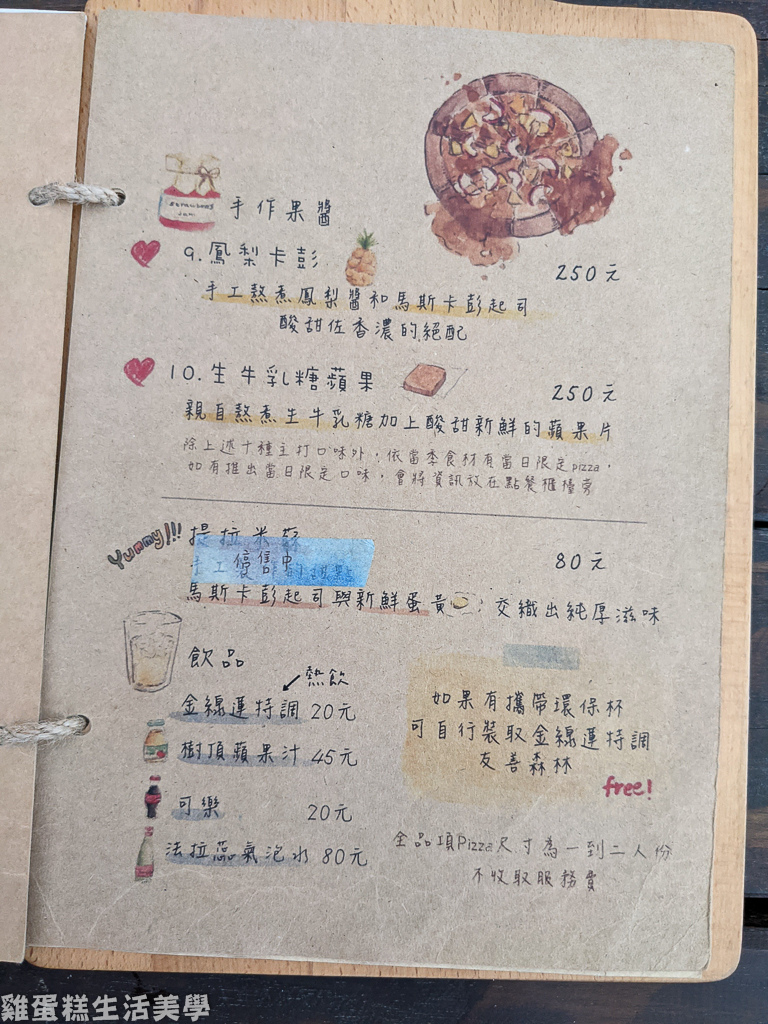 strawberry
jam
手作果醬
9.鳳梨卡彭
250元
手工熬煮鳳梨醬和馬斯卡彭起司
酸甜佐香濃的絕配
10.生牛乳糖蘋果
250元
親自熬煮生牛乳糖加上酸甜新鮮的蘋果片
除上述十種主打口味外，依當季食材有當日限定pizza，
如有推出當日限定口味，會將資訊放在點餐櫃檯旁
Yummy!!! 提拉米蘇
80元
停售中
馬斯卡彭起司與新鮮蛋黃，交織出純厚滋味
飲品
熱飲
金線蓮特調 20元
樹頂蘋果汁 45元
可樂 20元
法拉蕊氣泡水 80元
如果有攜帶環保杯
可自行裝取金線蓮特調
友善森林
free!
全品項Pizza尺寸為一到二人份
不收取服務費
雞蛋糕生活美學